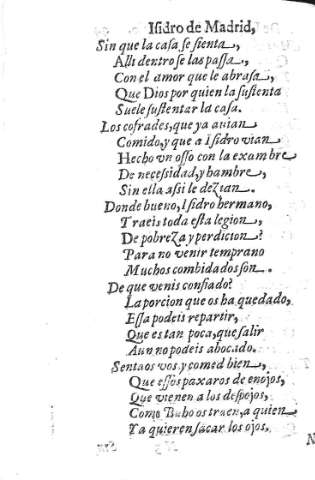 Isidro de Madrid,
Sin que la casa se sienta,
Alli dentro se las passa,
Con el amor que le abrasa,
Que Dios por quien la sustenta
Suele sustentar la casa.
Los cofrades, que ya auian
Comido, y que a Isidro vian
Hecho vn osso con la exambre
De necessidad, y hambre,
Sin ella assi le dezian.
Donde bueno, Isidro hermano,
Traeis toda esta legion,
De pobreza y perdicion?
Para no venir temprano
Muchos combidados son.
De que venis confiado?
La porcion que os ha quedado,
Essa podeis repartir,
Que es tan poca, que salir
Aun no podeis abocado.
Sentaos vos y comed bien,
Que essos paxaros de enojos,
Que vienen a los despojos,
Como Buho os traen, a quien
Ya quieren sacar los ojos,